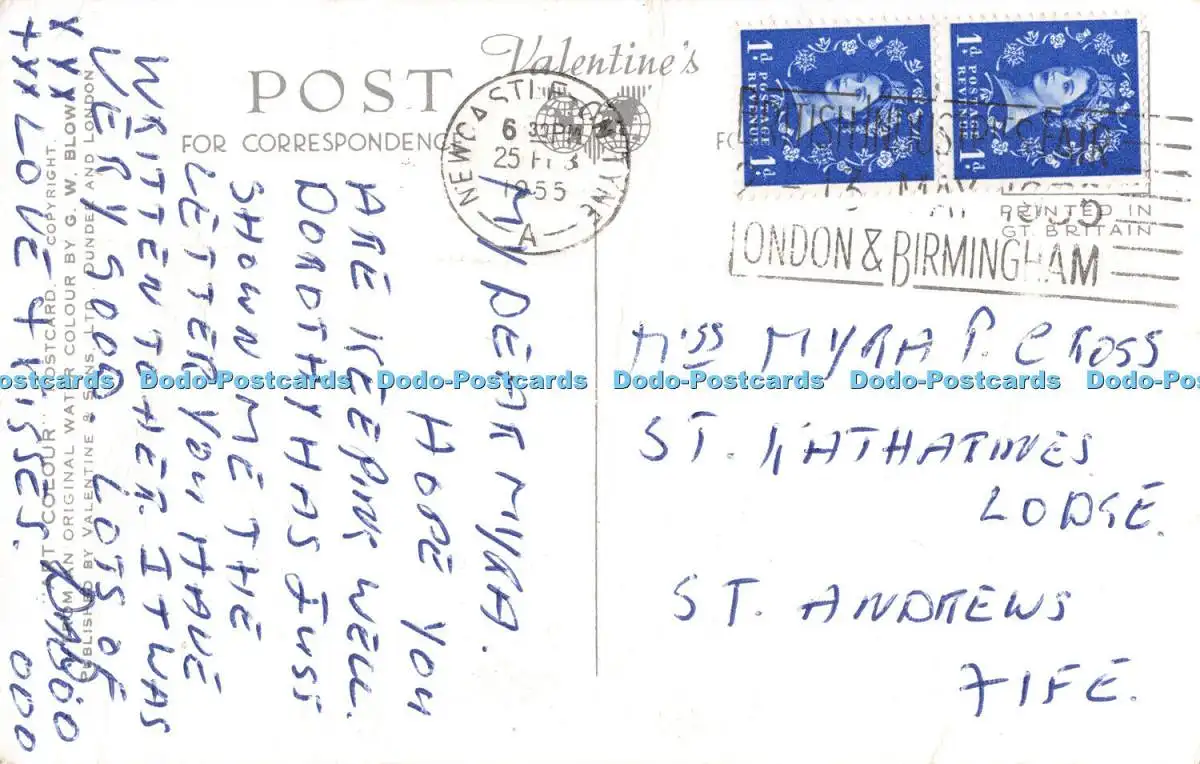 Valentine's
POST
FOR CORRESPONDENCE
NEWCASTLE
TYNE
6 32PM
25 FEB
1955
A
1d. POSTAGE REVENUE 1d.
1d. POSTAGE REVENUE 1d.
BRITISH INDUSTRIES FAIR
2 - 13 MAY 1955
LONDON & BIRMINGHAM
PRINTED IN
GT. BRITAIN
MISS MYRA P. CROSS
ST. KATHARINES
LODGE.
ST. ANDREWS
FIFE.
MY DEAR MYRA.
HOPE YOU
ARE KEEPING WELL.
DOROTHY HAS JUST
SHOWN ME THE
LETTER YOU HAVE
WRITTEN TO HER. IT WAS
VERY GOOD. LOTS OF
LOVE & KISSES.
ART COLOUR" POSTCARD. COPYRIGHT.
FROM AN ORIGINAL WATER COLOUR BY G. W. BLOW
PUBLISHED BY VALENTINE & SONS, LTD., DUNDEE AND LONDON
Dodo-Postcards Dodo-Postcards Dodo-Postcards Dodo-Postcards Dodo-Postcards